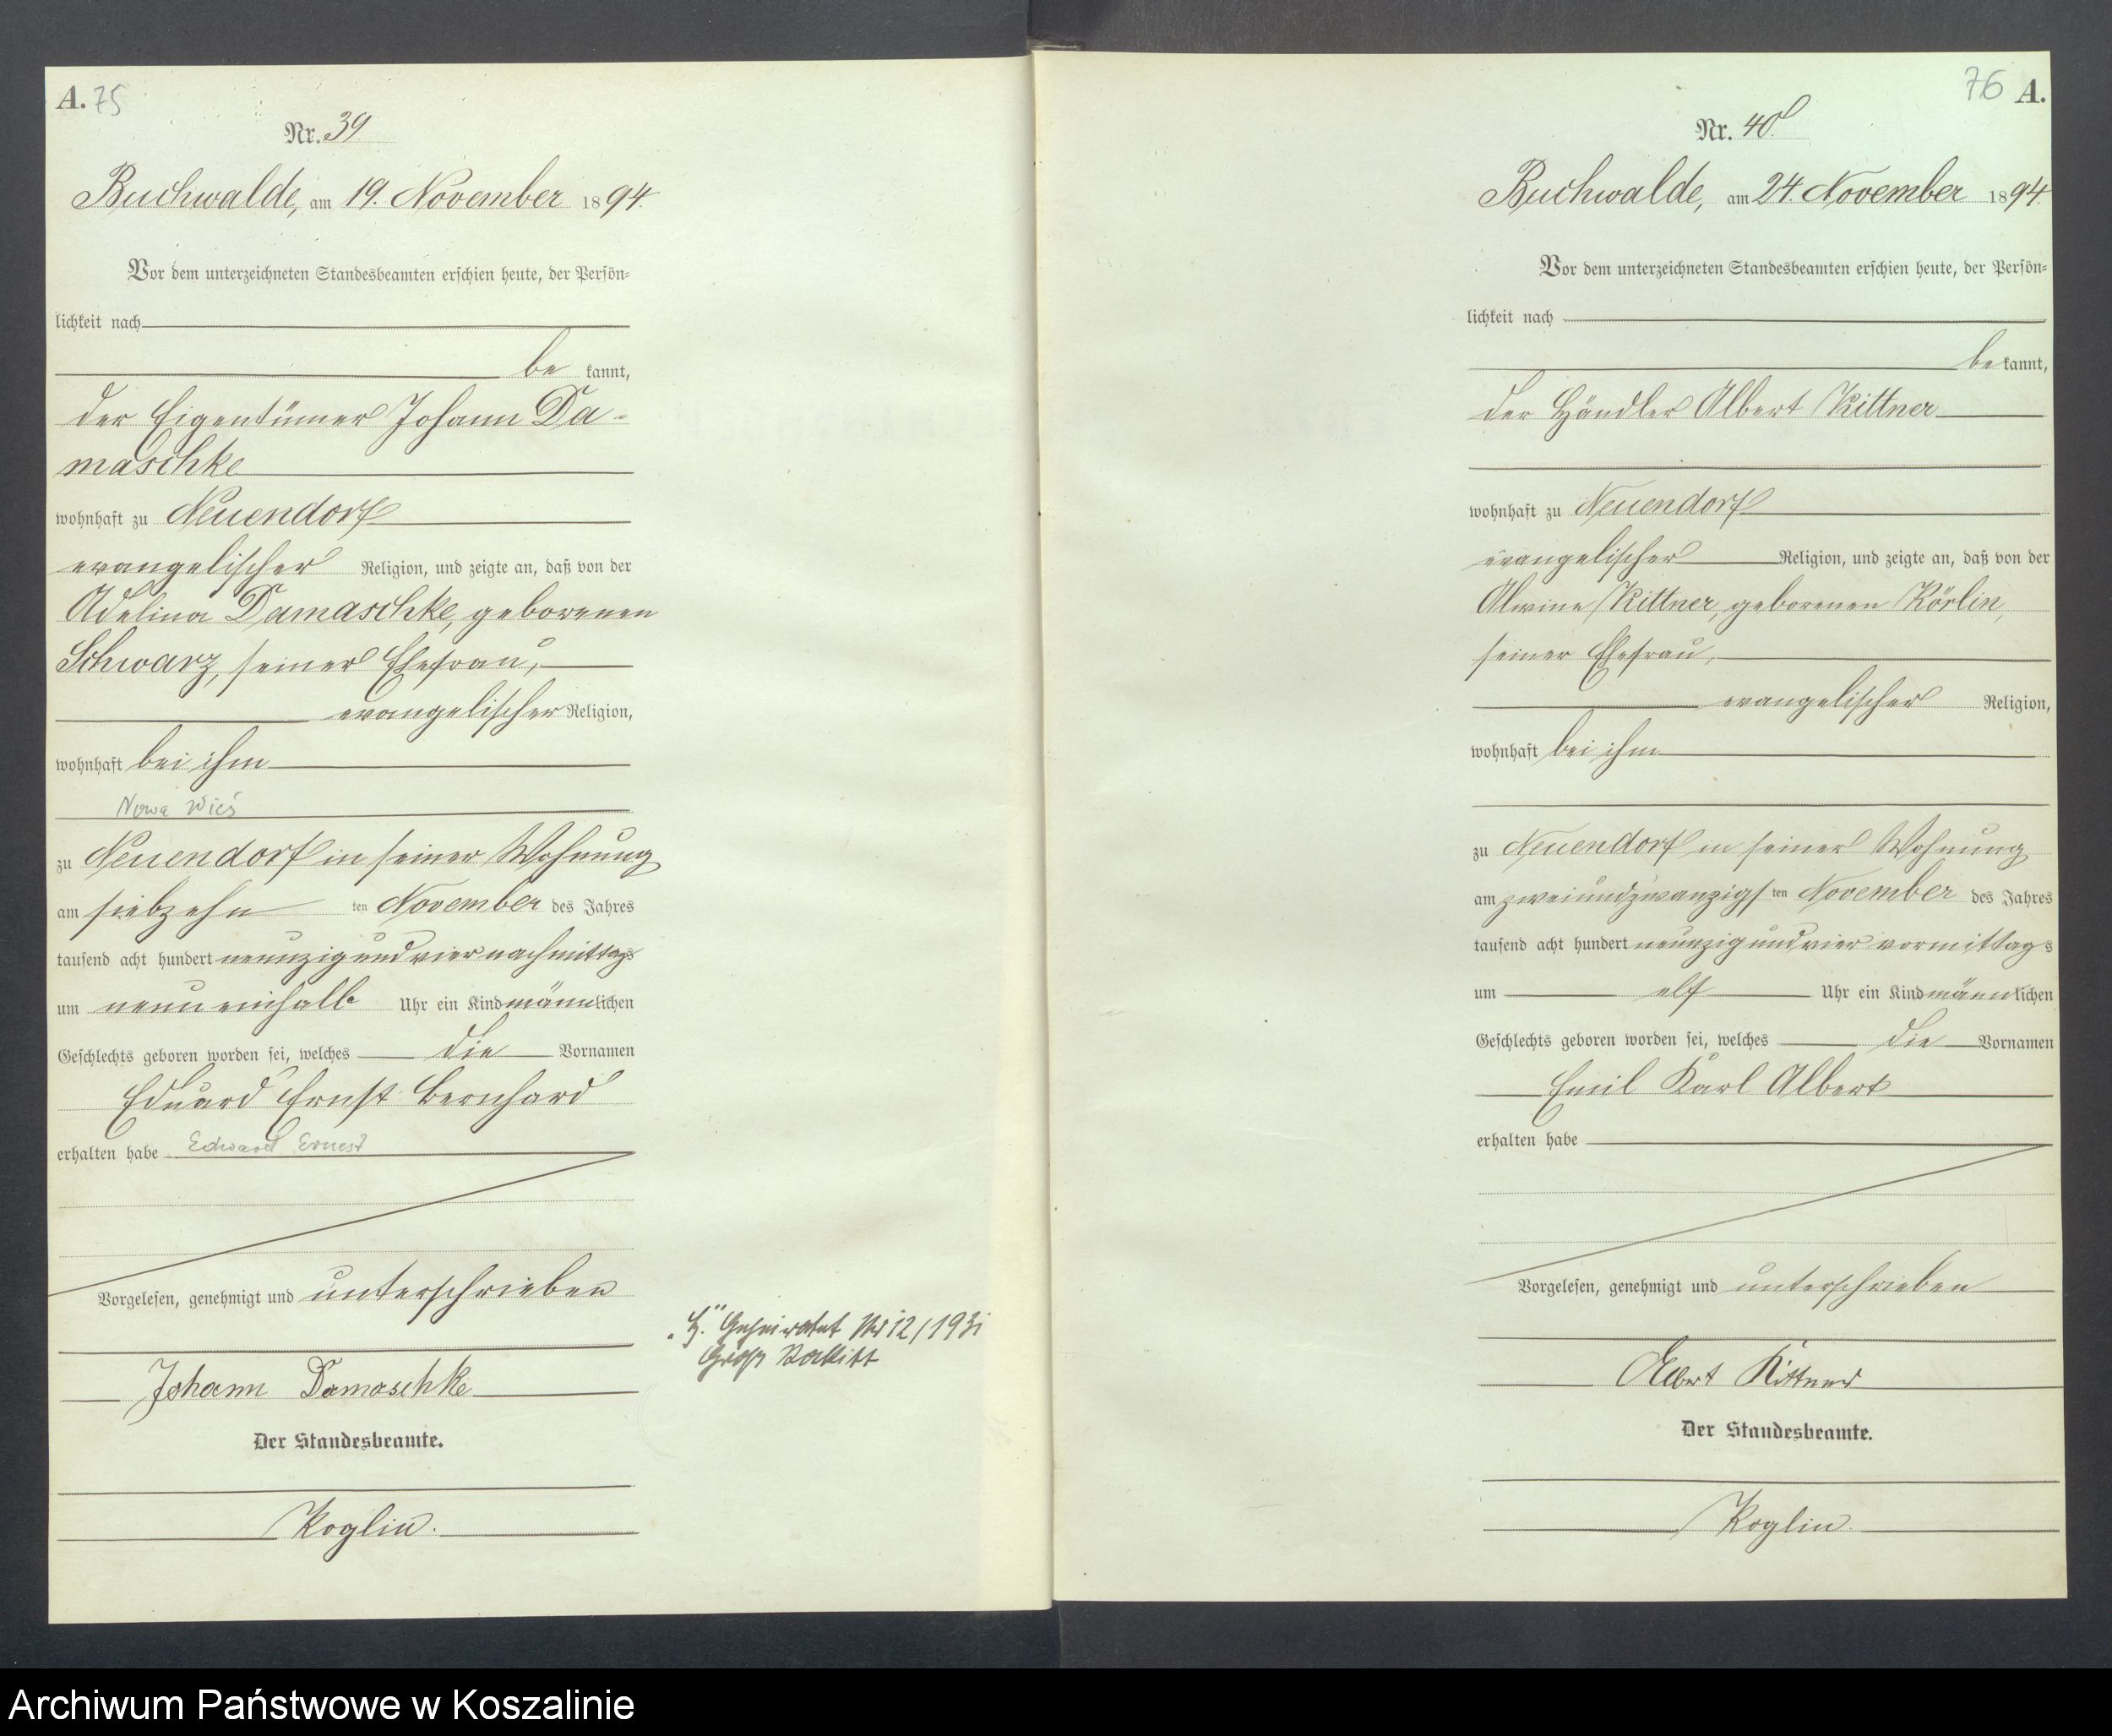 A. 75
Nr. 39
Buchwalde, am 19. November 1894.
Vor dem unterzeichneten Standesbeamten erschien heute, der Persön-
lichkeit nach
be kannt,
der Eigentümer Johann Da-
maschke
wohnhaft zu Neuendorf
evangelischer Religion, und zeigte an, daß von der
Adelina Damaschke, geborenen
Schwarz, seiner Ehefrau,
evangelischer Religion,
wohnhaft bei ihm
Nowa Wieś
zu Neuendorf in seiner Wohnung
am siebzehn ten November des Jahres
tausend acht hundert neunzig und vier nachmittags
um neun einhalb Uhr ein Kind männlichen
Geschlechts geboren worden sei, welches die Vornamen
Eduard Ernst Bernhard
erhalten habe Edward Ernest
Vorgelesen, genehmigt und unterschrieben
Johann Damaschke
Der Standesbeamte.
Koglin.
„H." Geheiratet Nr 12/1931
Groß
76 A.
Nr. 40
Buchwalde, am 24. November 1894.
Vor dem unterzeichneten Standesbeamten erschien heute, der Persön-
lichkeit nach
be kannt,
der Händler Albert Kittner
wohnhaft zu Neuendorf
evangelischer Religion, und zeigte an, daß von der
Alwine Kittner, geborenen Körlin,
seiner Ehefrau,
evangelischer Religion,
wohnhaft bei ihm
zu Neuendorf in seiner Wohnung
am zweiundzwanzigs ten November des Jahres
tausend acht hundert neunzig und vier vormittags
um elf Uhr ein Kind männlichen
Geschlechts geboren worden sei, welches die Vornamen
Emil Karl Albert
erhalten habe
Vorgelesen, genehmigt und unterschrieben
Albert Kittner
Der Standesbeamte.
Koglin.
Archiwum Państwowe w Koszalinie